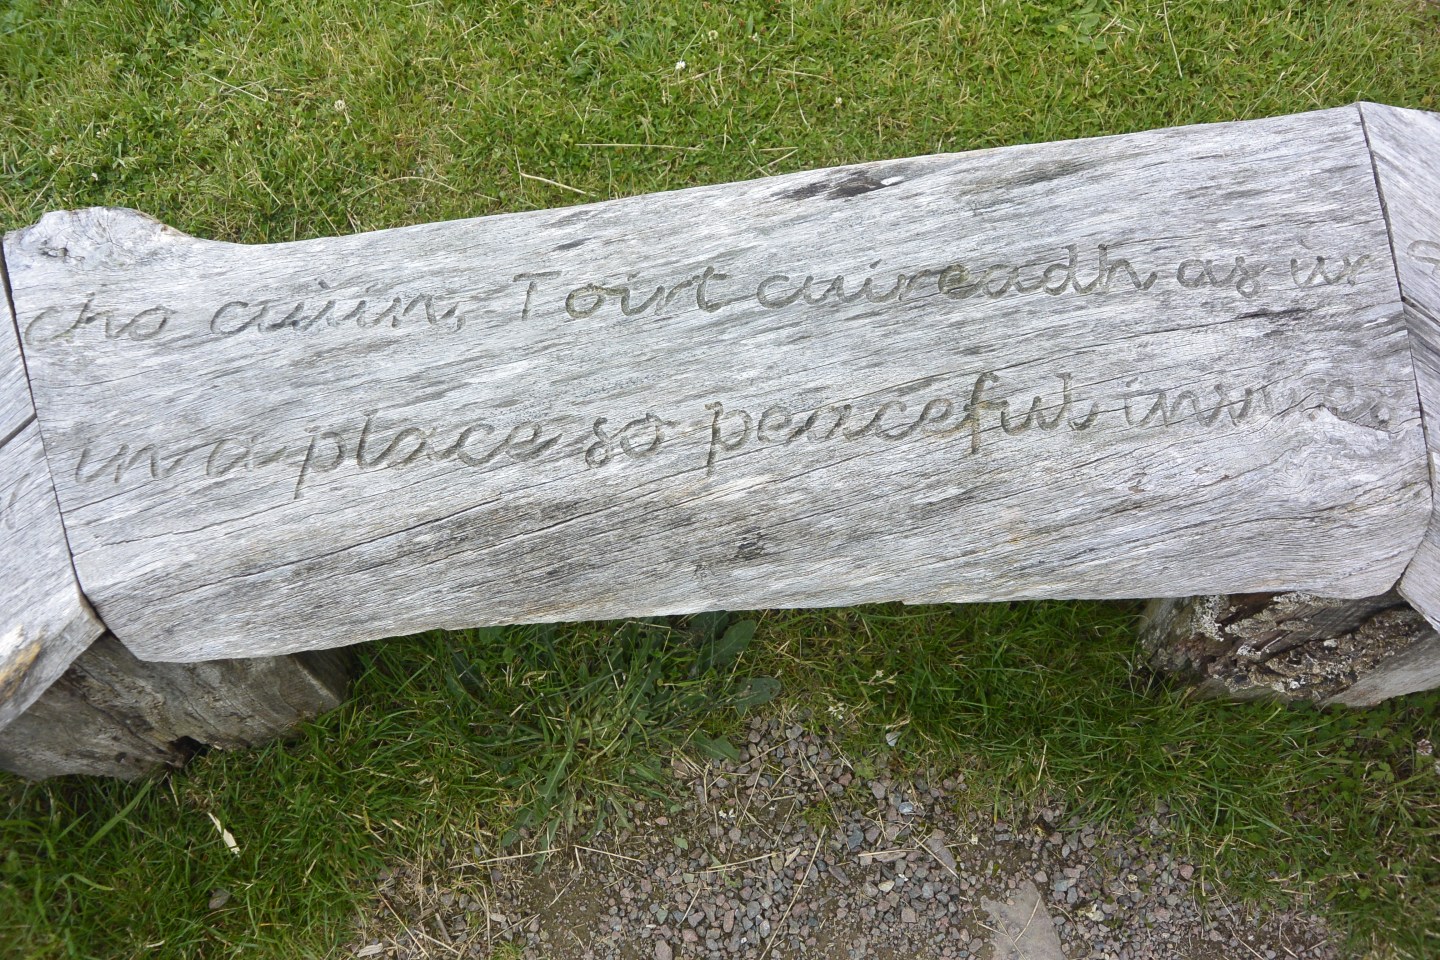 cho ciùin, Toirt cuireadh as ùr
in a place so peaceful